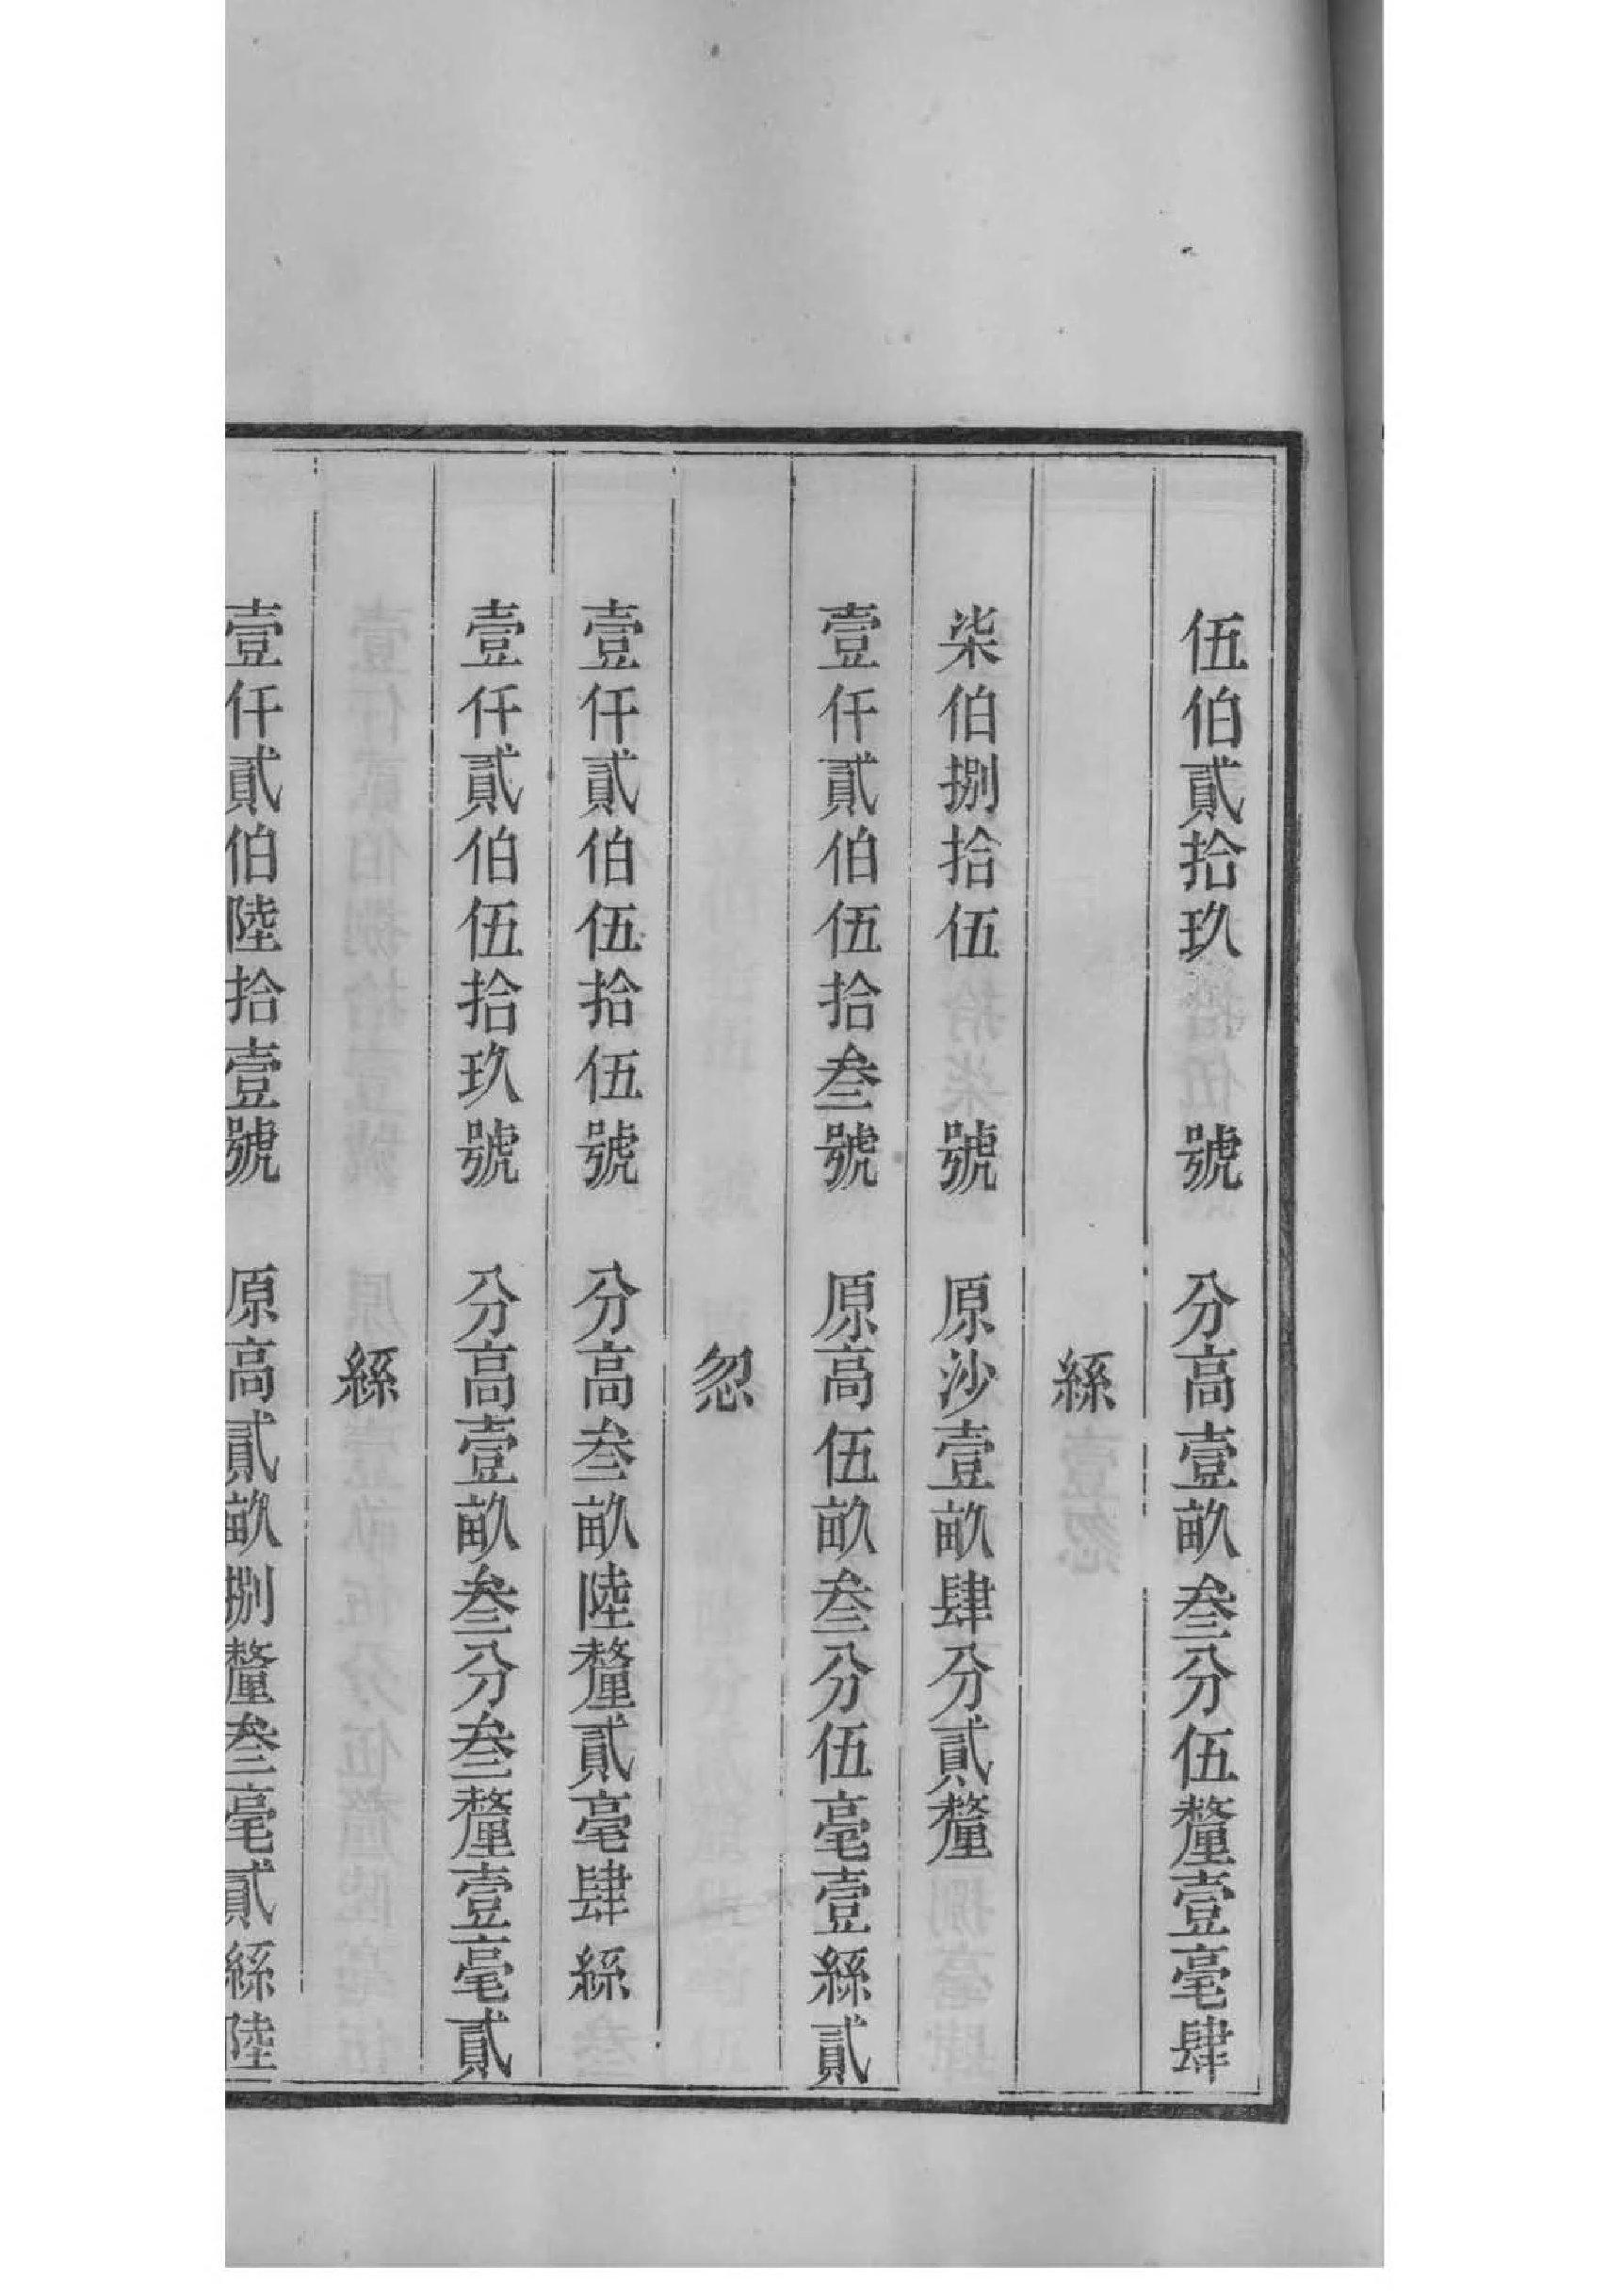 伍伯貳拾玖　　號　分高壹畝叁分伍釐壹毫肆
絲
柒伯捌拾伍　　號　原沙壹畝肆分貳釐
壹仟貳伯伍拾叁號　原高伍畝叁分伍毫壹絲貳
忽
壹仟貳伯伍拾伍號　分高叁畝陸釐貳毫肆絲
壹仟貳伯伍拾玖號　分高壹畝叁分叁釐壹毫貳
絲
壹仟貳伯陸拾壹號　原高貳畝捌釐叁毫貳絲陸